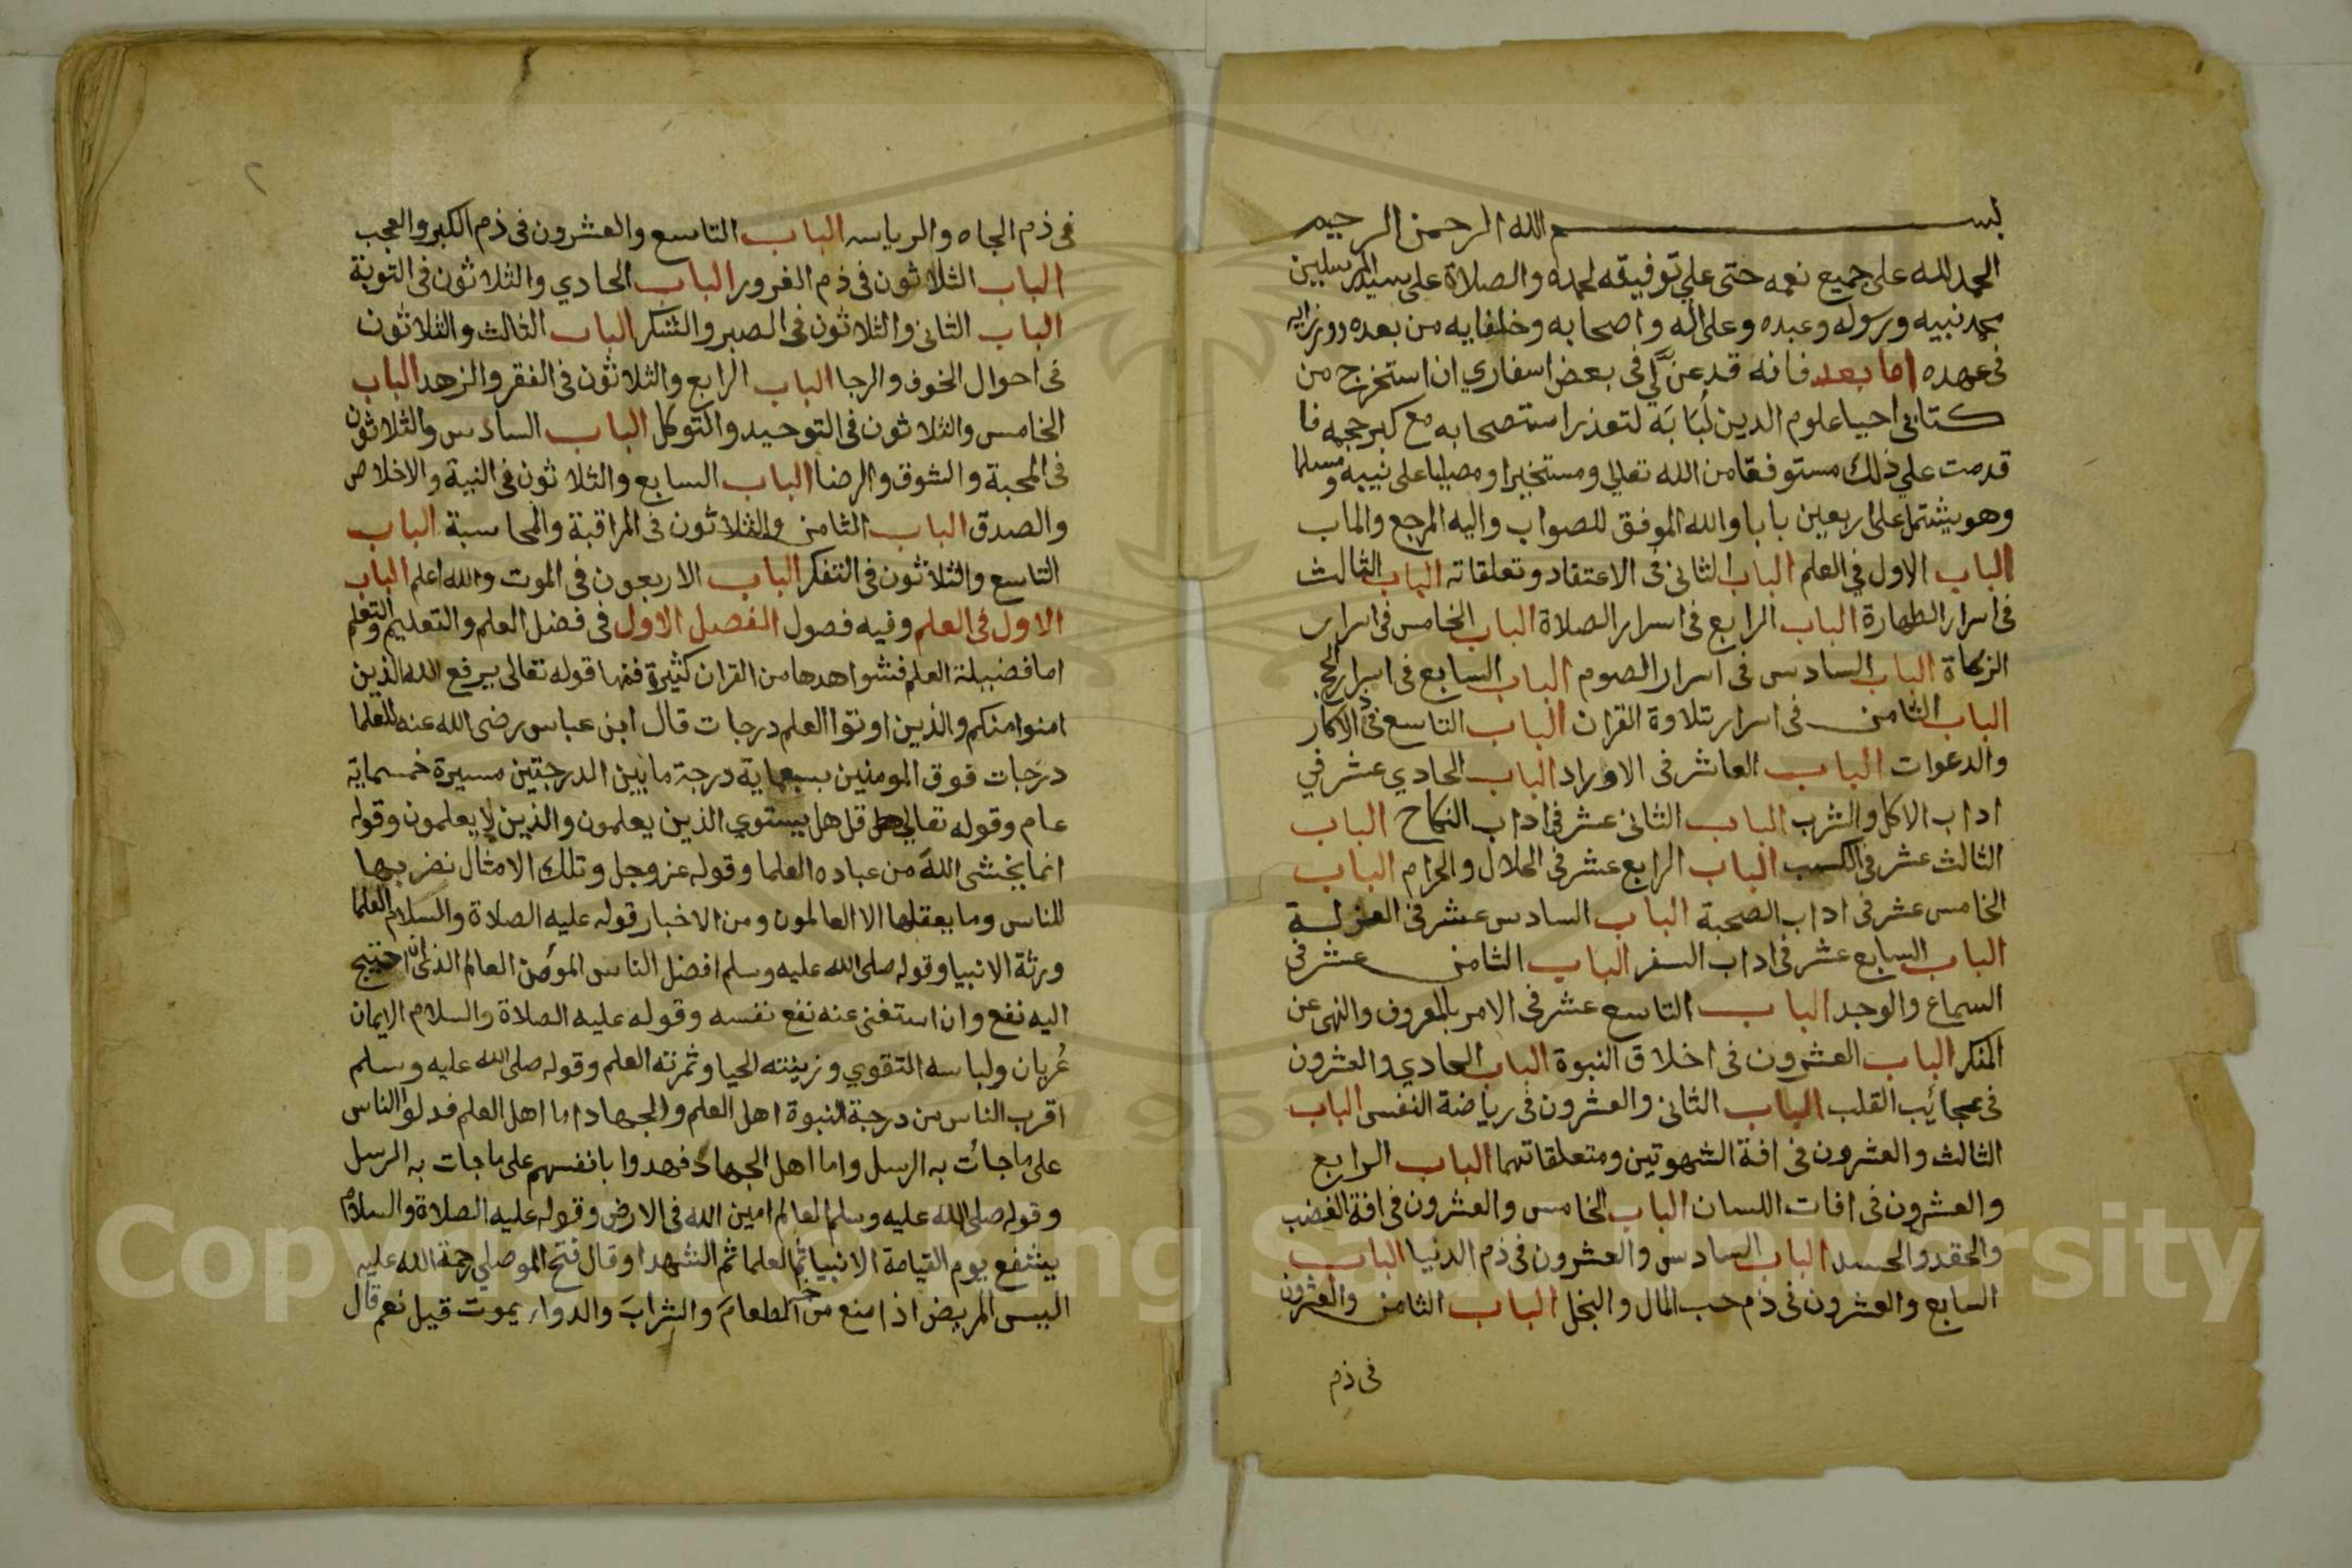 بسم الله الرحمن الرحيم
الحمد لله على جميع نعمه حتى علي توفيقه لحمده والصلاة على سيد المرسلين
محمد نبيه ورسوله وعبده وعلى اله واصحابه وخلفايه من بعده ووزرايه
في عهده اما بعد فانه قد عنّ لي في بعض اسفاري ان استخرج من
كتابي احيا علوم الدين لُبَابَه لتعذر استصحابه مع كبر حجمه فا
قدمت علي ذلك مستوفقا من الله تعالي ومستخيرا ومصليا على نبيه ومسلما
وهو يشتمل على اربعين بابا والله الموفق للصواب واليه المرجع والماب
الباب الاول في العلم الباب الثاني في الاعتقاد وتعلقاته الباب الثالث
في اسرار الطهارة الباب الرابع في اسرار الصلاة الباب الخامس في اسرار
الزكاة الباب السادس في اسرار الصوم الباب السابع في اسرار الحج
الباب الثامن في اسرار تلاوة القران الباب التاسع في الاذكار
والدعوات الباب العاشر في الاوراد الباب الحادي عشر في
اداب الاكل والشرب الباب الثاني عشر في اداب النكاح الباب
الثالث عشر في الكسب الباب الرابع عشر في الحلال والحرام الباب
الخامس عشر في اداب الصحبة الباب السادس عشر في العزلة
الباب السابع عشر في اداب السفر الباب الثامن عشر في
السماع والوجد الباب التاسع عشر في الامر بالمعروف والنهى عن
المنكر الباب العشرون في اخلاق النبوة الباب الحادي والعشرون
في عجائب القلب الباب الثاني والعشرون في رياضة النفس الباب
الثالث والعشرون في افة الشهوتين ومتعلقاتهما الباب الرابع
والعشرون في افات اللسان الباب الخامس والعشرون في افة الغضب
والحقد والحسد الباب السادس والعشرون في ذم الدنيا الباب
السابع والعشرون في ذم حب المال والبخل الباب الثامن والعشرون
في ذم
٢
في ذم الجاه والرياسه الباب التاسع والعشرون في ذم الكبر والعجب
الباب الثلاثون في ذم الغرور الباب الحادي والثلاثون في التوبة
الباب الثاني والثلاثون في الصبر والشكر الباب الثالث والثلاثون
في احوال الخوف والرجا الباب الرابع والثلاثون في الفقر والزهد الباب
الخامس والثلاثون في التوحيد والتوكل الباب السادس والثلاثون
في المحبة والشوق والرضا الباب السابع والثلاثون في النية والاخلاص
والصدق الباب الثامن والثلاثون في المراقبة والمحاسبة الباب
التاسع والثلاثون في التفكر الباب الاربعون في الموت والله اعلم الباب
الاول في العلم وفيه فصول الفصل الاول في فضل العلم والتعليم والتعلم
اما فضيلة العلم فشواهدها من القران كثيرة فمنها قوله تعالى يرفع الله الذين
امنوا منكم والذين اوتوا العلم درجات قال ابن عباس رضى الله عنه للعلما
درجات فوق المومنين بسبعماية درجة ما بين الدرجتين مسيرة خمسماية
عام وقوله تعالي قل هل يستوي الذين يعلمون والذين لا يعلمون وقوله
انما يخشى اللهَ من عباده العلما وقوله عز وجل وتلك الامثال نضربها
للناس وما يعقلها الا العالمون ومن الاخبار قوله عليه الصلاة والسلام العلما
ورثة الانبيا وقوله صلى الله عليه وسلم افضل الناس المؤمن العالم الذى ان احتيج
اليه نفع وان استغنى عنه نفع نفسه وقوله عليه الصلاة والسلام الايمان
عُريان ولباسه التقوي وزينته الحيا وثمرته العلم وقوله صلى الله عليه وسلم
اقرب الناس من درجة النبوة اهل العلم والجهاد اما اهل العلم فدلوا الناس
على ما جائت به الرسل واما اهل الجهاد فهدوا بانفسهم على ما جات به الرسل
وقوله صلى الله عليه وسلم العالم امين الله في الارض وقوله عليه الصلاة والسلام
يتشفع يوم القيامة الانبيا ثم العلما ثم الشهدا وقال فتح الموصلي رحمة الله عليه
اليس المريض اذا منع من الطعامَ والشرابَ والدواء يموت قيل نعم قال
Copyright © King Saud University